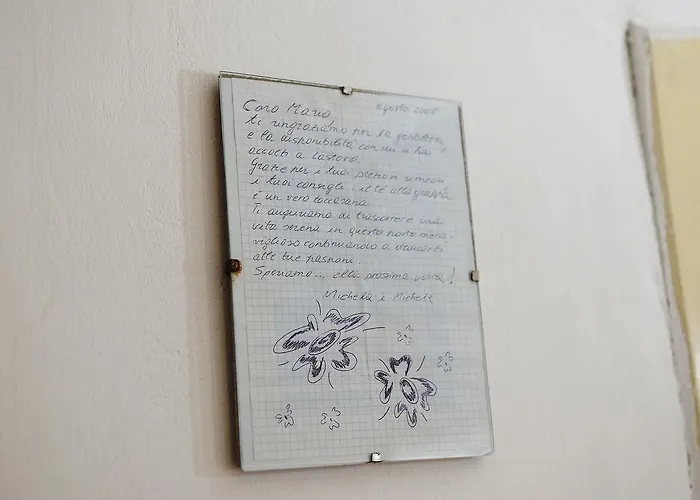 Caro Mario, agosto
ti ringraziamo per la gentilezza
e la disponibilità con cui ci hai
accolti a Lastovo.
Grazie per i tuoi preziosi
i tuoi consigli... il tè alla grappa
è un vero toccasana.
Ti auguriamo di trascorrere una
vita serena in questo posto mera-
viglioso continuando a dedicarti
alle tue passioni.
Speriamo... alla prossima volta!
Michela e Michele